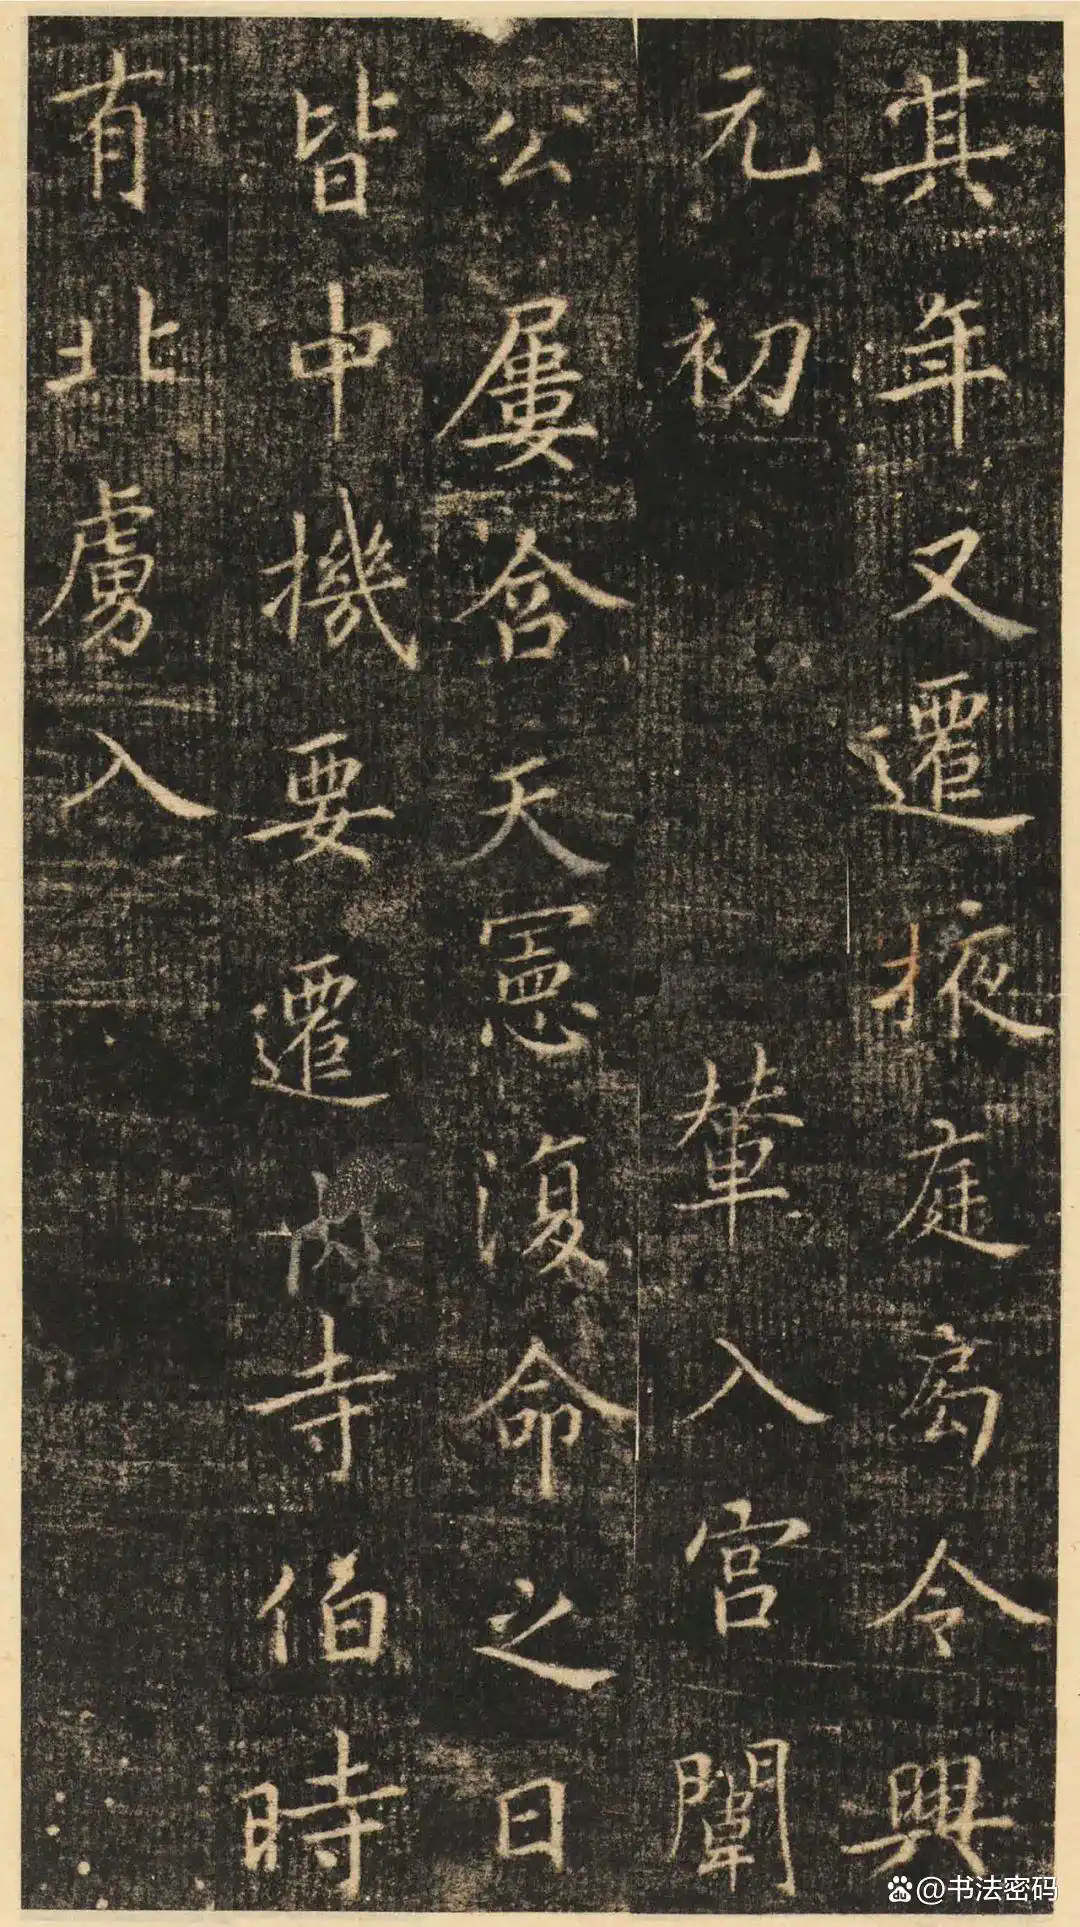 其年又遷掖庭局令興
元初 輦入宮闈
公屢含天憲復命之日
皆中機要遷內寺伯時
有北虜入
@书法密码